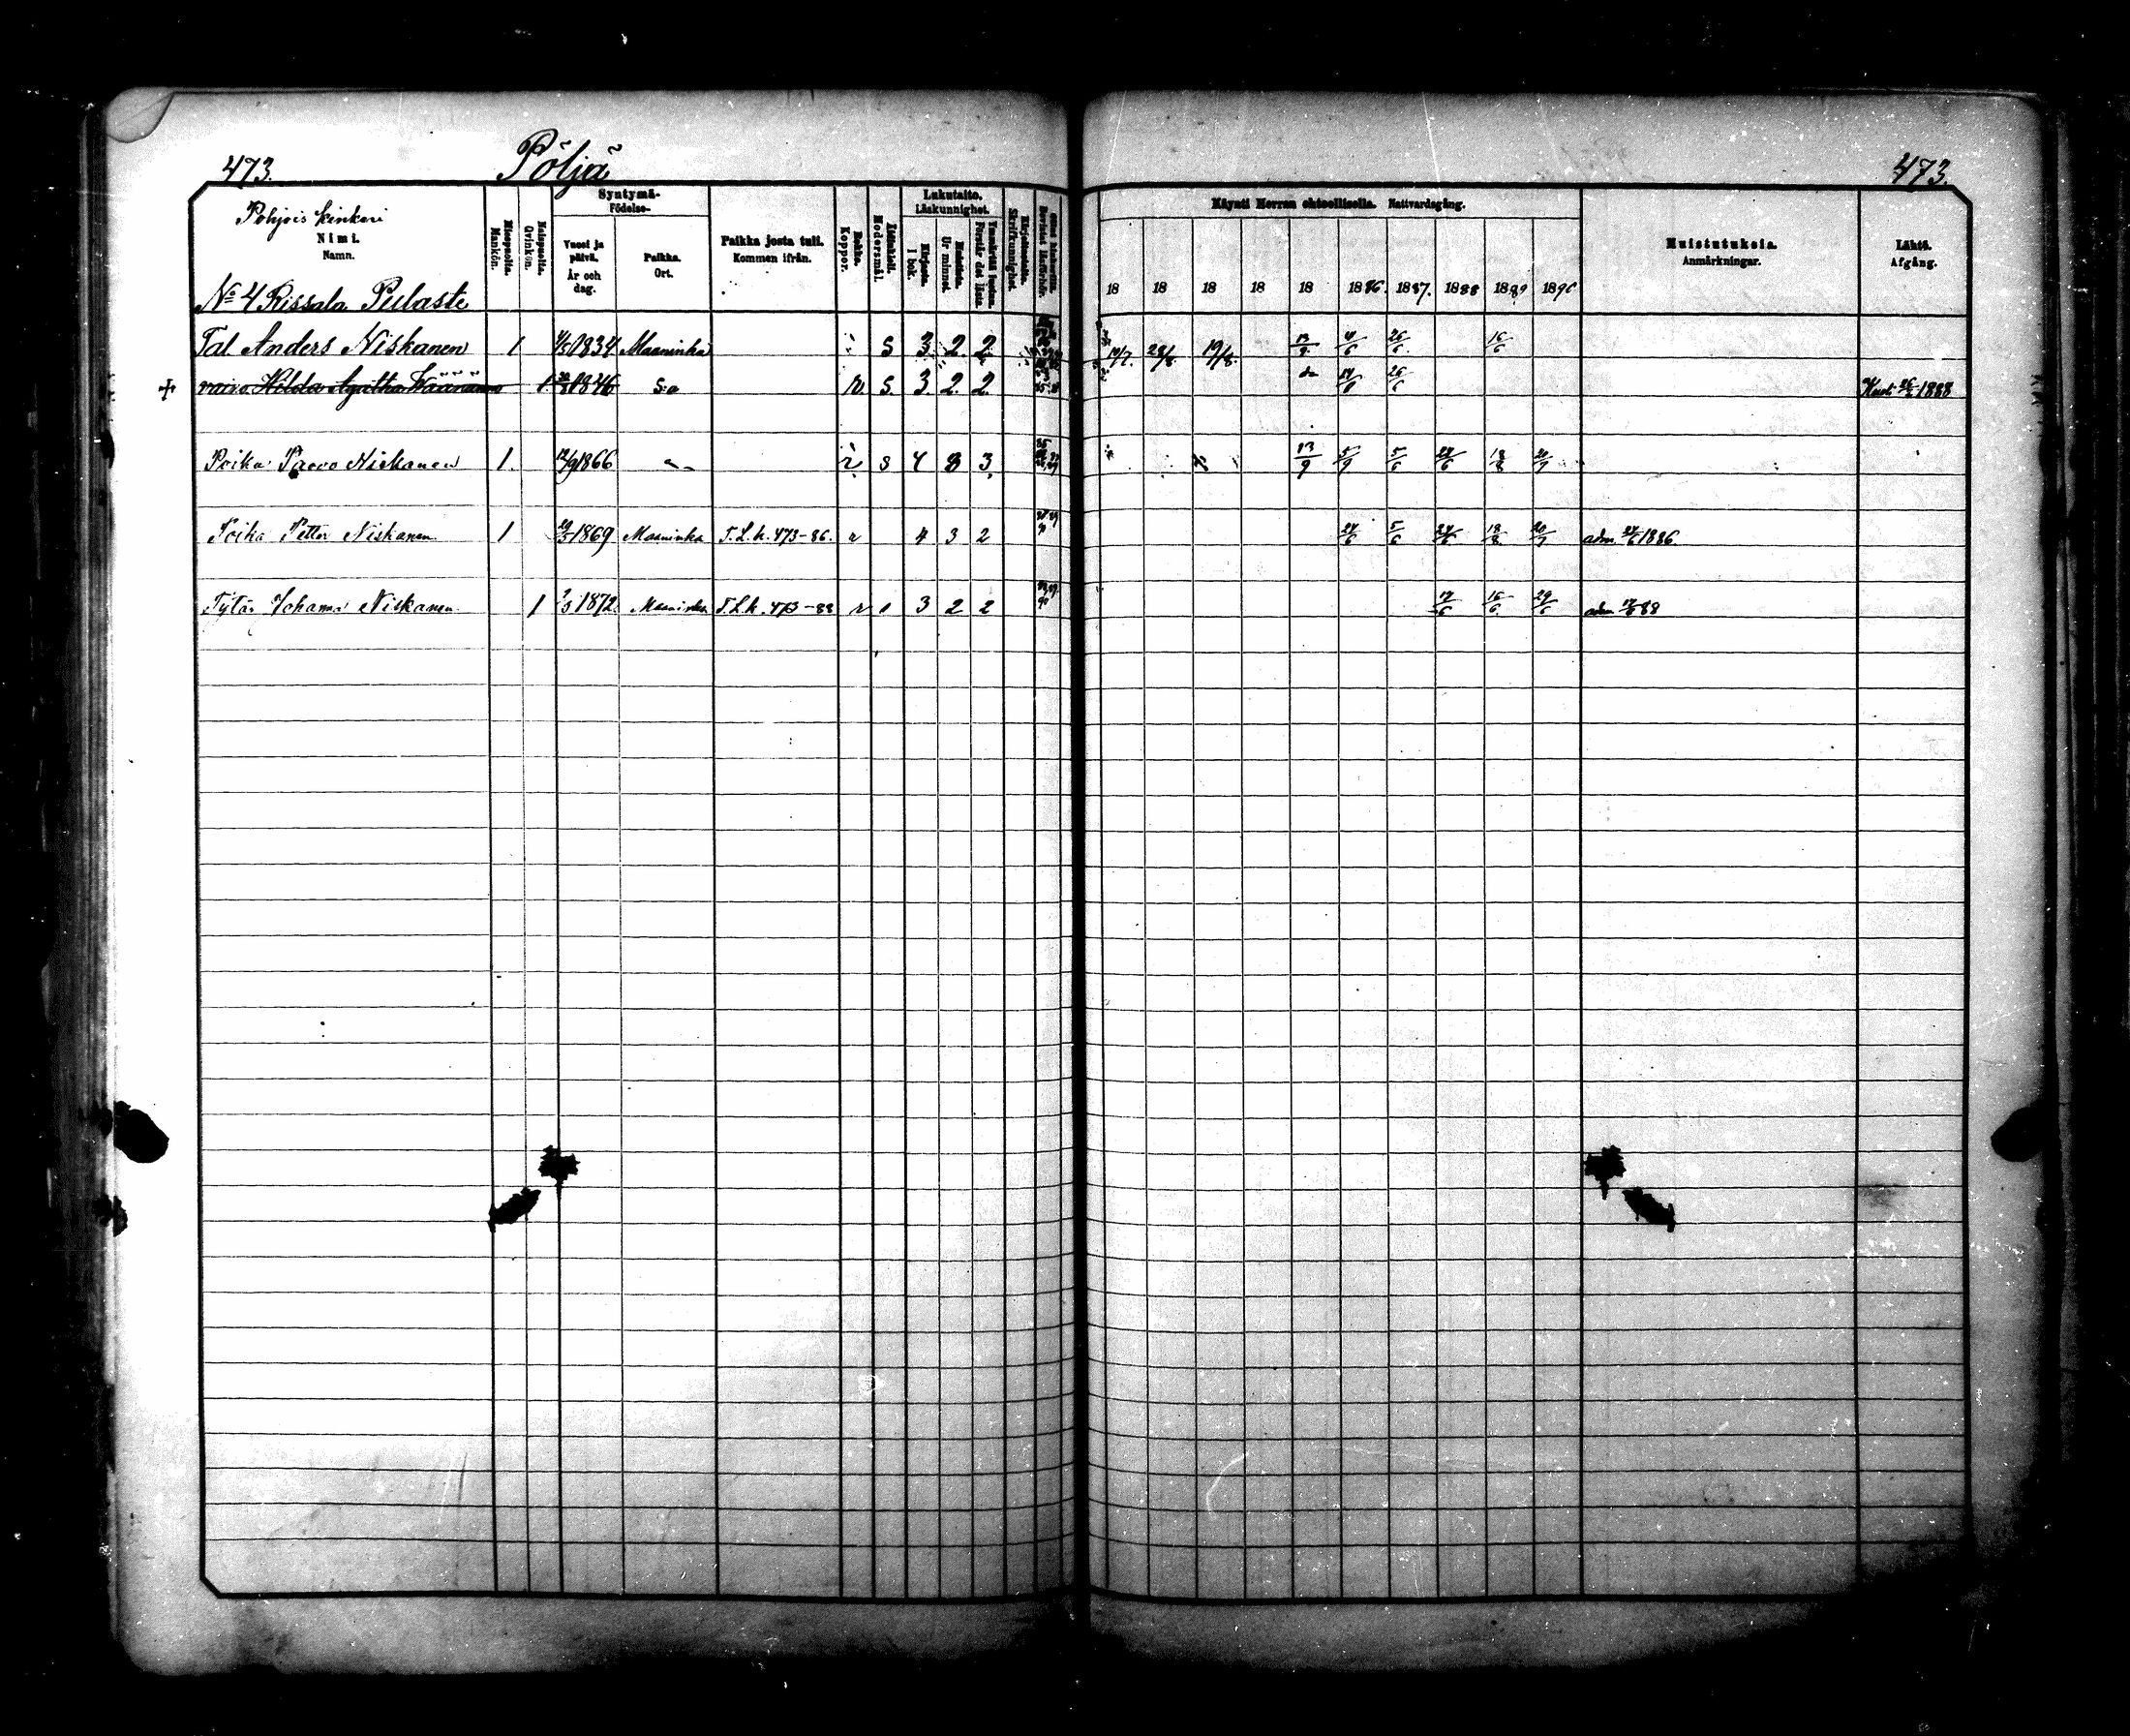 473. Pöljä 473.
Pohjois kinkeri
Nimi.
Namn.
Miespuolia. Mankön.
Naispuolia. Qvinkön.
Syntymä-
Födelse-
Vuosi ja päivä.
År och dag.
Paikka.
Ort.
Paikka josta tuli.
Kommen ifrån.
Rokko. Koppor.
Äidinkieli. Modersmål.
Lukutaito.
Läskunnighet.
Kirjasta. I bok.
Ulkoa. Ur minnet.
Förstår det lästa.
Kirjoitustaito. Skrifkunnighet
Bevistat läsförhör.
Käynti Herran ehtoollisella. Nattvardsgång.
18 18 18 18 18 1886. 1887. 1888 1889 1890
Muistutuksia.
Anmärkningar.
Lähtö.
Afgång.
No 4 Rissala Pulaste
Tal Anders Niskanen 1 1834 Maaninka s 3 2 2 28/8 19/8 13/9 4/6 26/6 16/6
vaimo Hilda Agatha 1 1846 s:a r. s. 3. 2. 2. do 26/6 Kuoli 1888
Poika Paavo Niskanen 1. 12/9 1866 r s 4 3 3 13/9 5/9 5/6 24/6 18/8 20/7
Poika Petter Niskanen 1 1869 Maaninka T.L.k. 473-86. r 4 3 2 24/6 5/6 24/6 18/8 20/7 adm. 24/6 1886
Tytär Johanna Niskanen 1 1872 Maaninka T.L.k. 473-88 r 3 2 2 17/6 16/6 29/6 adm 17/6 88